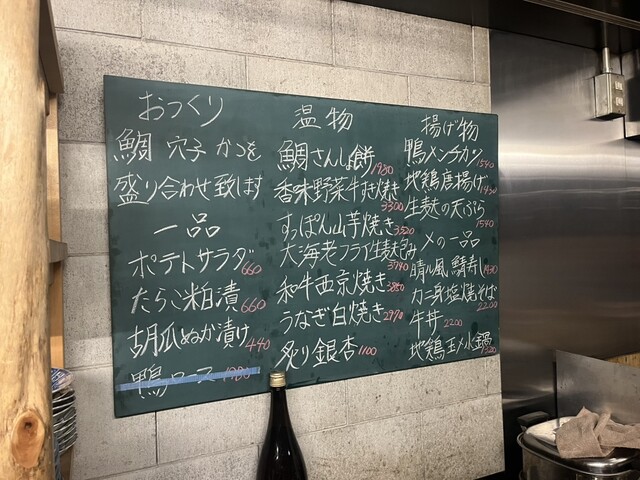 おつくり
鯛 穴子 かつを
盛り合わせ致します
一品
ポテトサラダ 660
たらこ粕漬 660
胡瓜ぬか漬け 440
鴨ロース 1980
温物
鯛さんしょ餅 1980
香味野菜牛すき焼き 3300
すっぽん山芋焼き 3520
大海老フライ生麩包み 3740
和牛西京焼き 3850
うなぎ白焼き 2970
炙り銀杏 1100
揚げ物
鴨メンチカツ 1540
地鶏唐揚げ 1430
生麩の天ぷら 1540
〆の一品
晴ル風 鯖寿し 1430
カニ身塩焼そば 2200
牛丼 2200
地鶏玉〆小鍋 1320